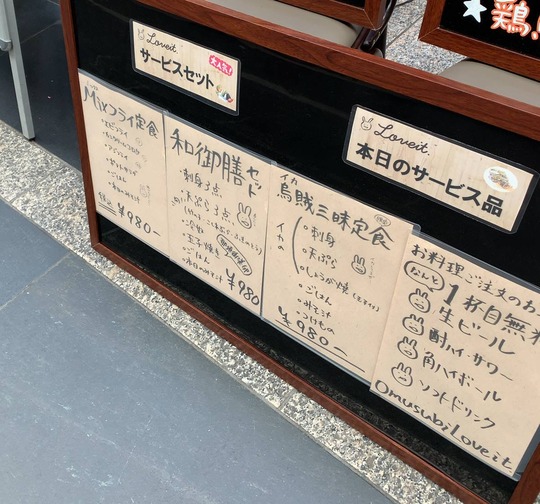 ★鶏
Loveit.
大人気!
サービスセット
Loveit.
本日のサービス品
Mixフライ定食
・エビフライ
・アジフライ
・ごはん
¥980-
和御膳セット
・刺身3点
・天ぷら3点
・玉子焼き
・ごはん
・本日のみそ汁
¥980
イカ
烏賊三昧定食
イカの
・刺身
・天ぷら
・しょうが焼
・ごはん
・みそ汁
・つけもの
¥980-
お料理ご注文のお
なんと
1杯目無料
生ビール
酎ハイ・サワー
角ハイボール
ソフトドリンク
OmusubiLoveit